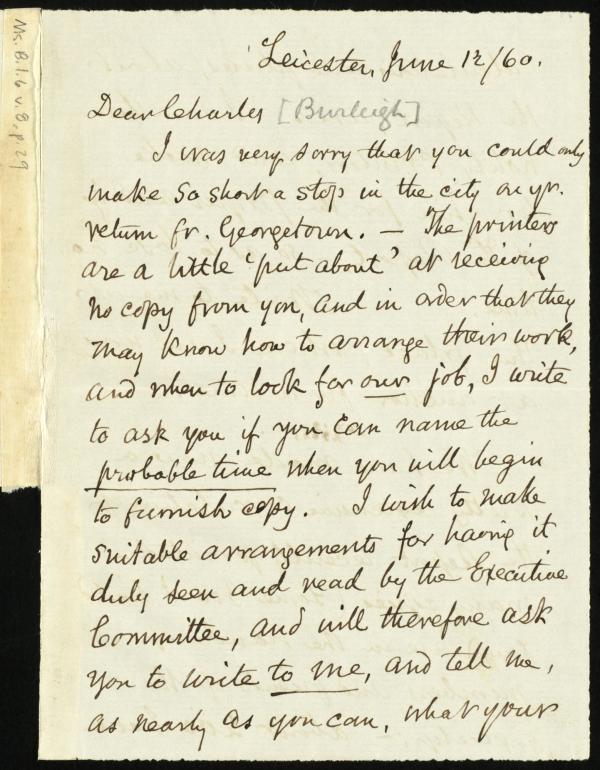 Ms. B. 1. 6 v. 8, p. 29
Leicester, June 12/60.
Dear Charles [Burleigh]
I was very sorry that you could only
make so short a stop in the city on yr.
return fr. Georgetown. — The printers
are a little 'put about' at receiving
no copy from you, and in order that they
may know how to arrange their work,
and when to look for our job, I write
to ask you if you can name the
probable time when you will begin
to furnish copy. I wish to make
suitable arrangements for having it
duly seen and read by the Executive
Committee, and will therefore ask
you to write to me, and tell me,
as nearly as you can, what your